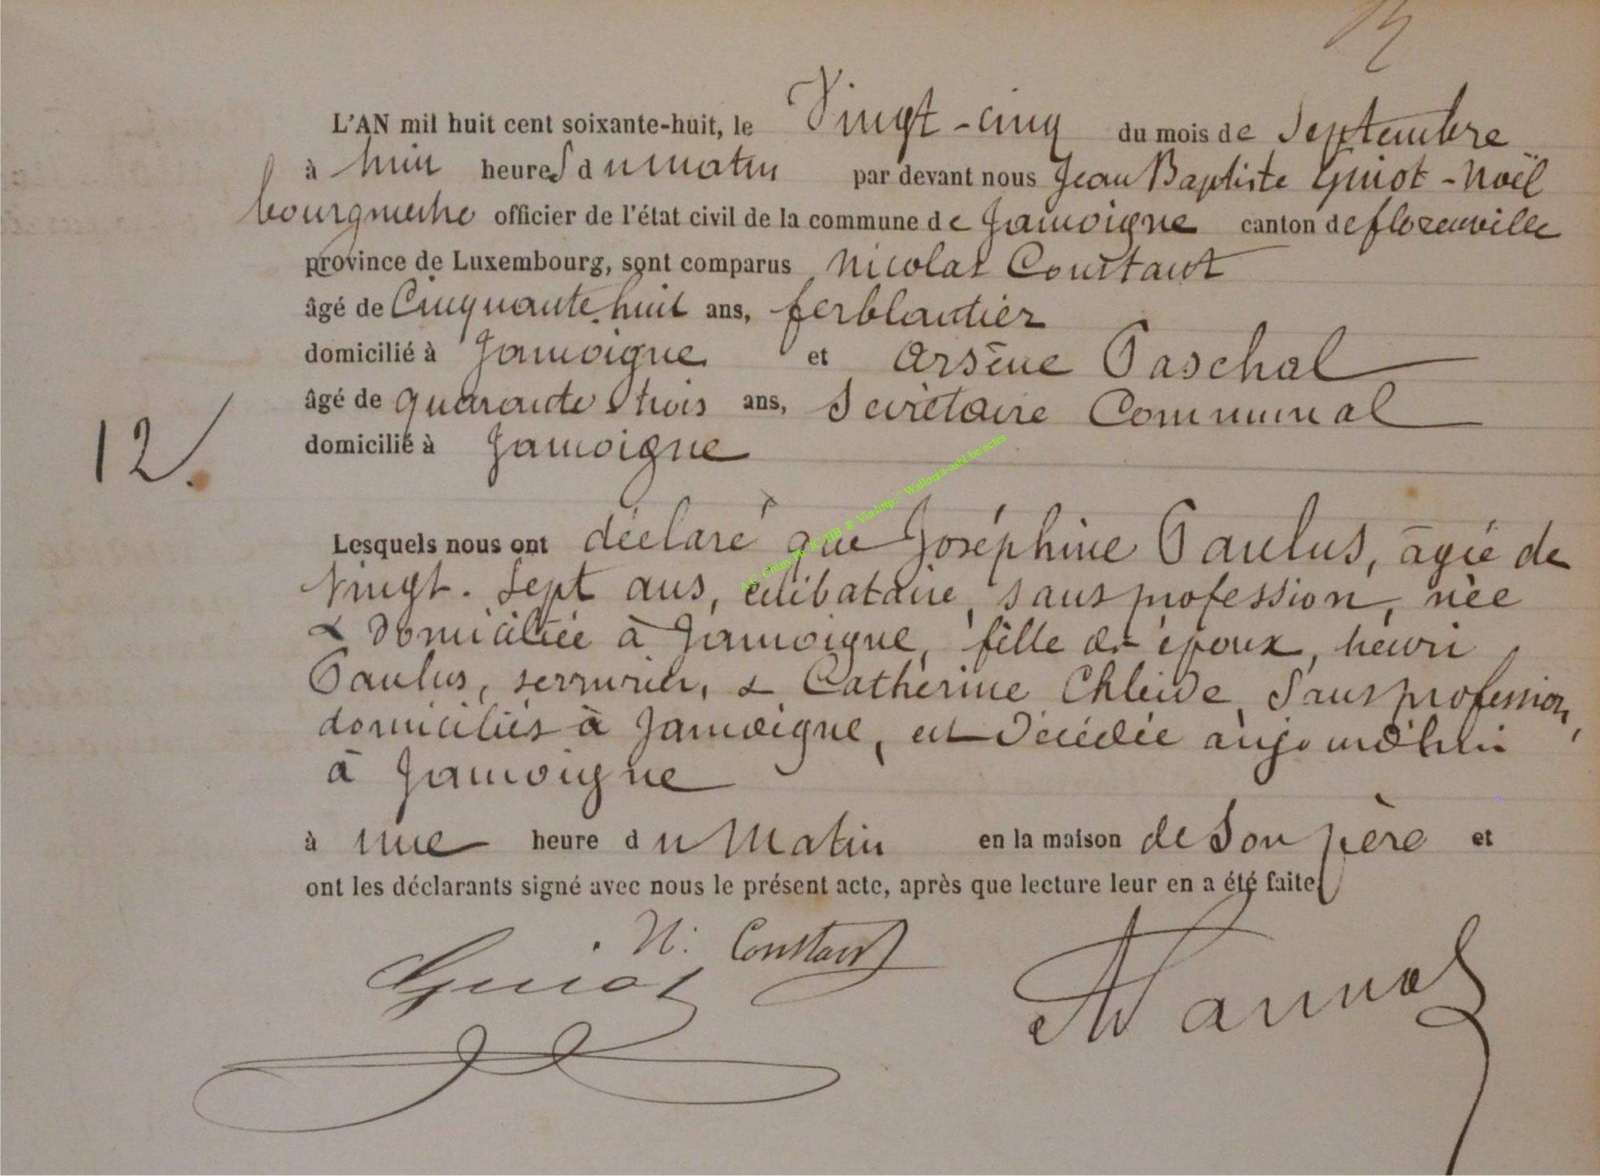 L'AN mil huit cent soixante-huit, le Vingt-cinq du mois de Septembre
à huit heures du matin par devant nous Jean Baptiste Guiot-Noël
bourgmestre officier de l'état civil de la commune de Jamoigne canton de florenville
province de Luxembourg, sont comparus Nicolas Constant
âgé de Cinquante huit ans, ferblantier
domicilié à Jamoigne et Arsène Paschal
âgé de quarante trois ans, Secrétaire Communal
12.
domicilié à Jamoigne
Lesquels nous ont déclaré que Joséphine Paulus, âgée de
Vingt. Sept ans, célibataire, sans profession, née
& domiciliée à Jamoigne, fille des époux, henri
Paulus, serrurier, & Catherine Chleide, Sans profession,
domiciliés à Jamoigne, est décédée aujourd'hui
à Jamoigne
à une heure du Matin en la maison de Son père et
ont les déclarants signé avec nous le présent acte, après que lecture leur en a été faite
N. Constant
Guiot